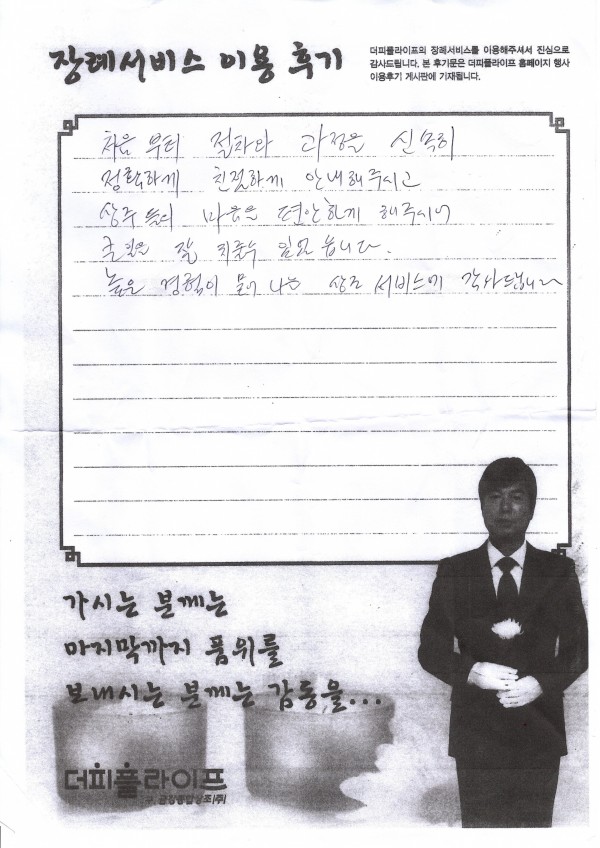 장례서비스 이용 후기
더피플라이프의 장례서비스를 이용해주셔서 진심으로
감사드립니다. 본 후기문은 더피플라이프 홈페이지 행사
이용후기 게시판에 기재됩니다.
처음 부터 절차와 과정을 신속히
정확하게 친절하게 안내해주시고
상주들의 마음을 편안하게 해주시어
잘 치출수 있었습니다.
높은 경험이 묻어 나는 상조 서비스에 감사드립니다
가시는 분께는
마지막까지 품위를
보내시는 분께는 감동을...
더피플라이프
구.금강종합상조(주)